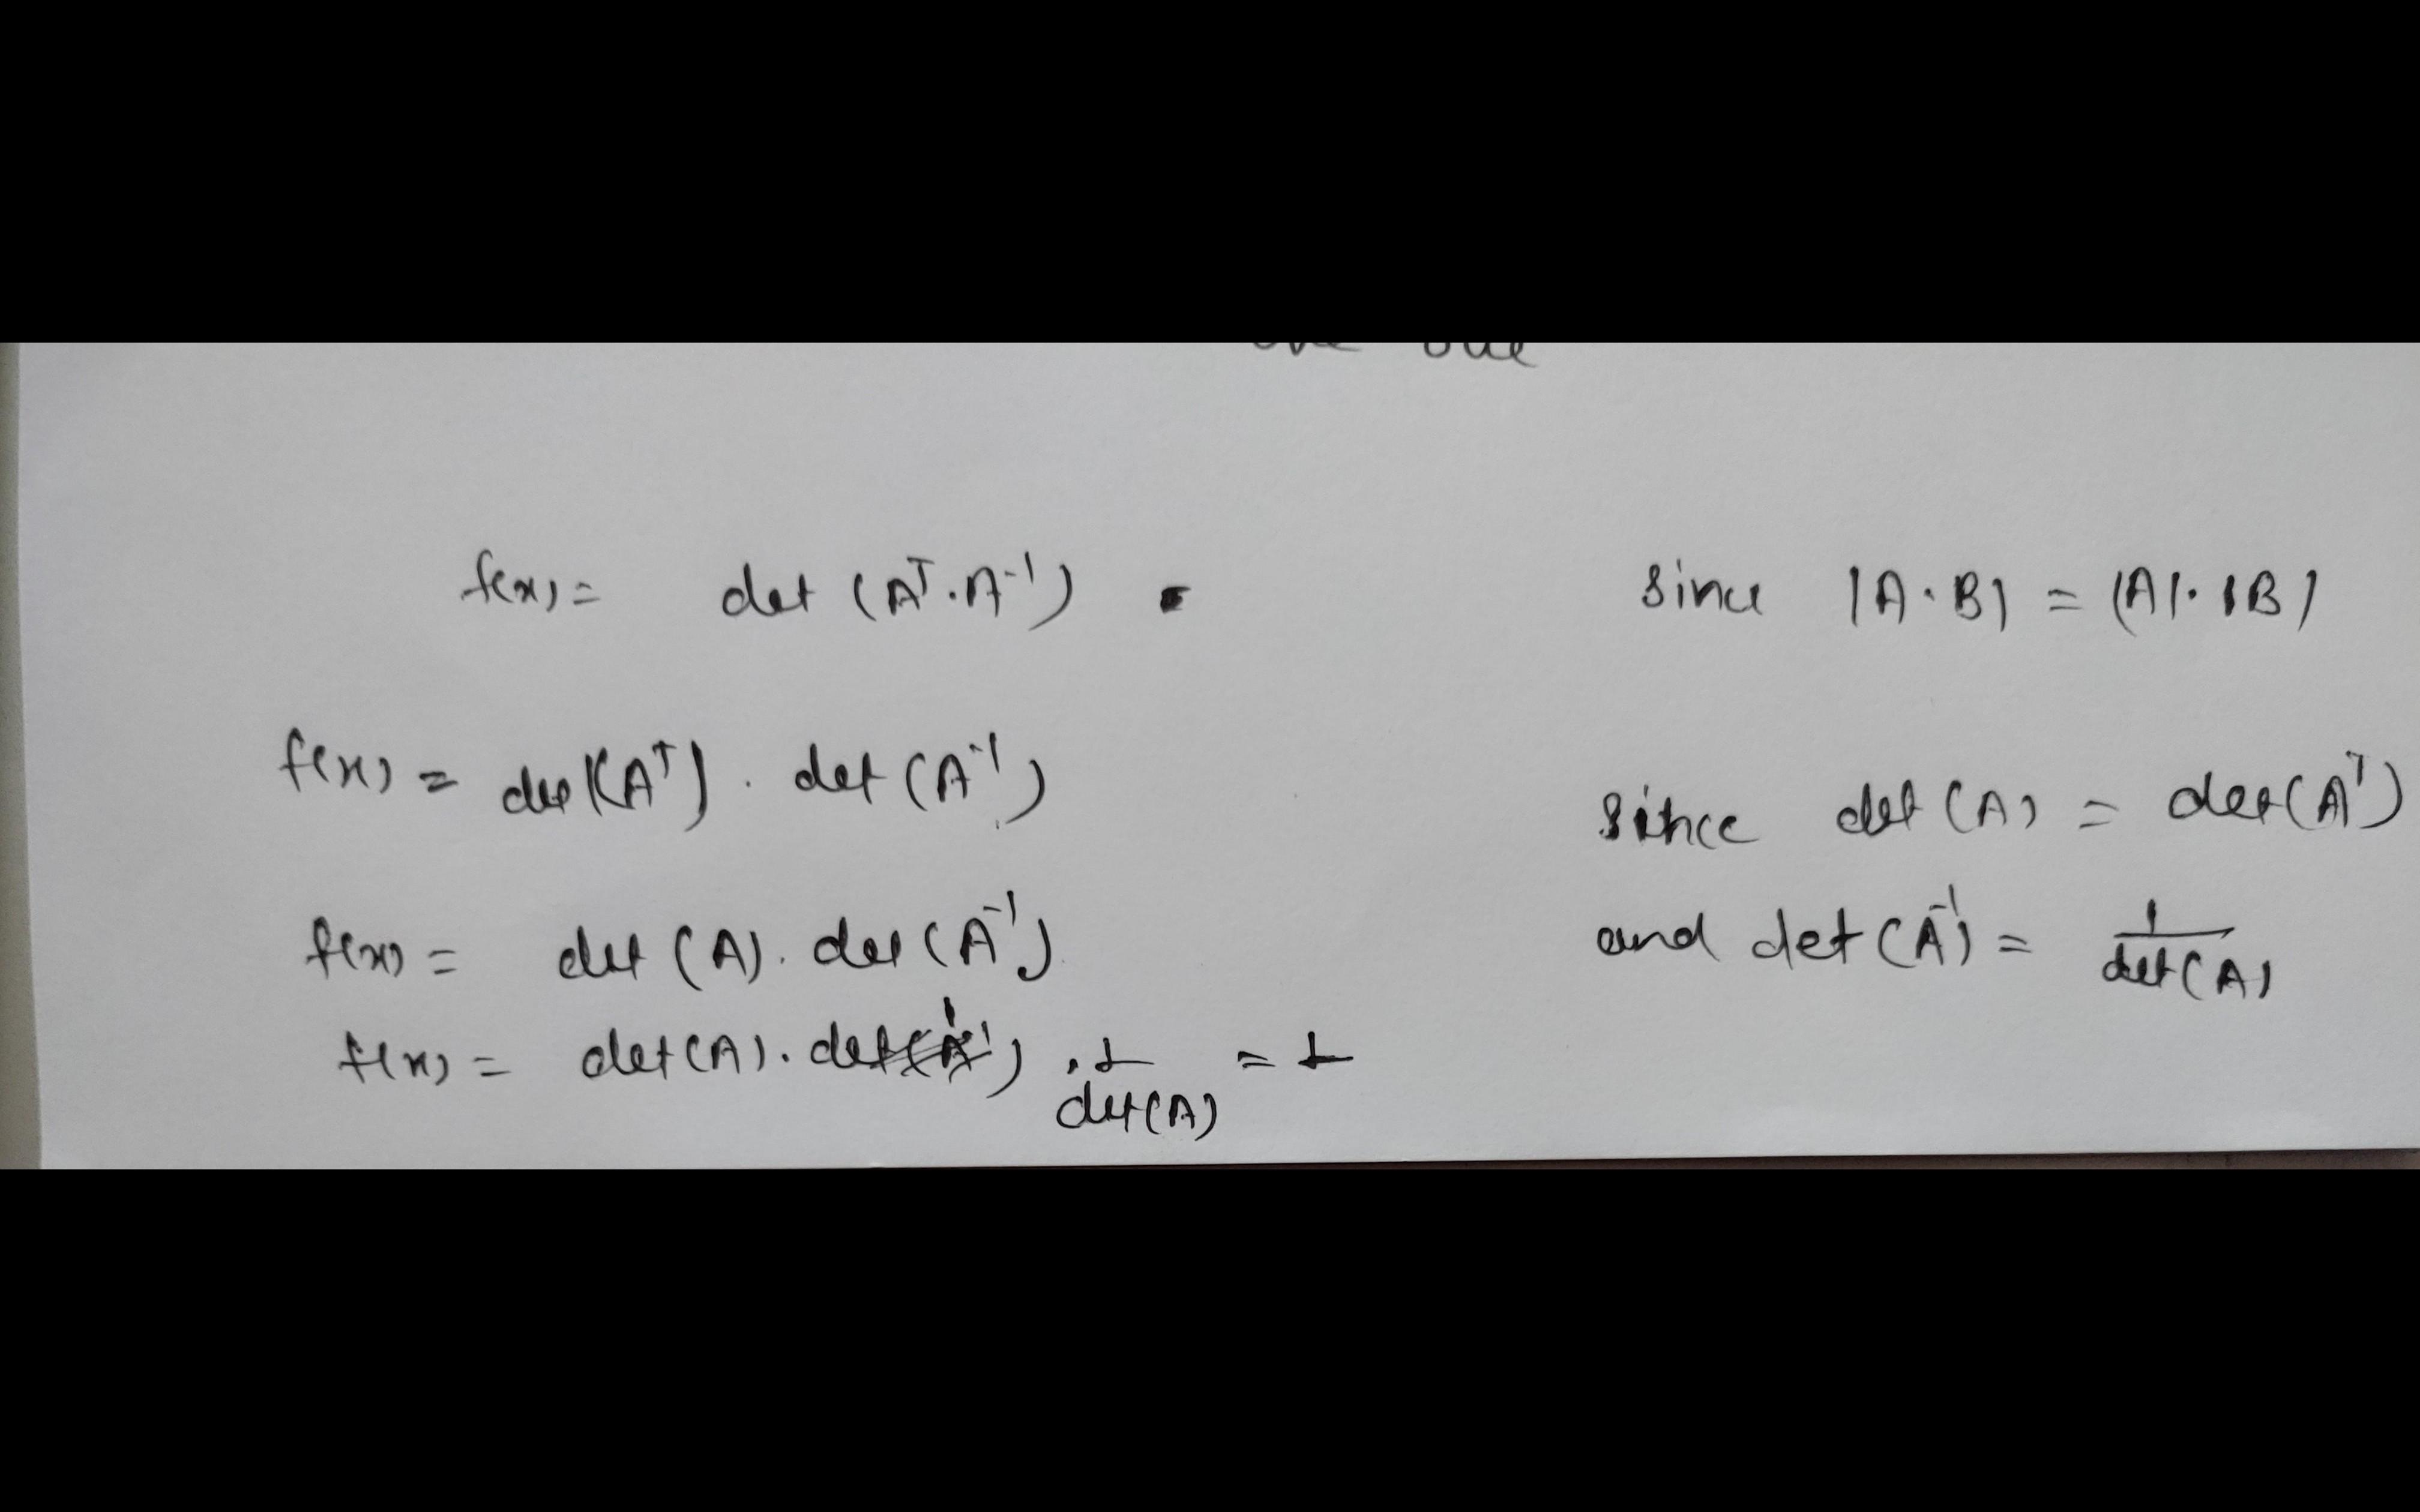 f(x) = det (Aᵀ.A⁻¹) since |A·B| = |A|·|B|
f(x) = det(Aᵀ) . det (A⁻¹)
since det (A) = det(Aᵀ)
f(x) = det (A). det (A⁻¹)
and det (A⁻¹) = 1/det(A)
f(x) = det(A). . 1/det(A) = 1